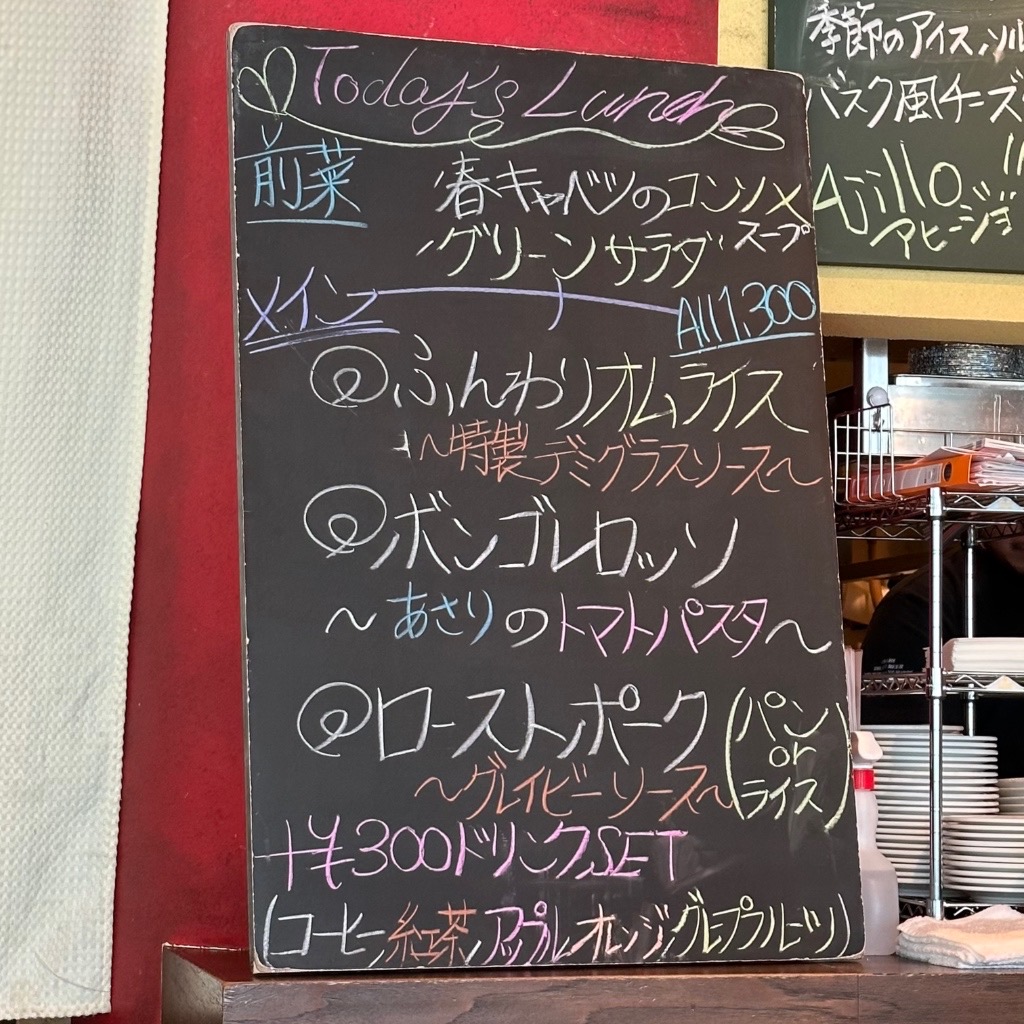 Today's Lunch
前菜
春キャベツのコンソメ
スープ
グリーンサラダ
メイン
All 1,300
ふんわりオムライス
~特製デミグラスソース~
ボンゴレロッソ
~あさりのトマトパスタ~
ローストポーク(パン or ライス)
~グレイビーソース~
+¥300ドリンクSET
(コーヒー,紅茶,アップル,オレンジ,グレープフルーツ)
季節のアイス,ソル
バスク風チーズ
Ajillo
アヒージョ